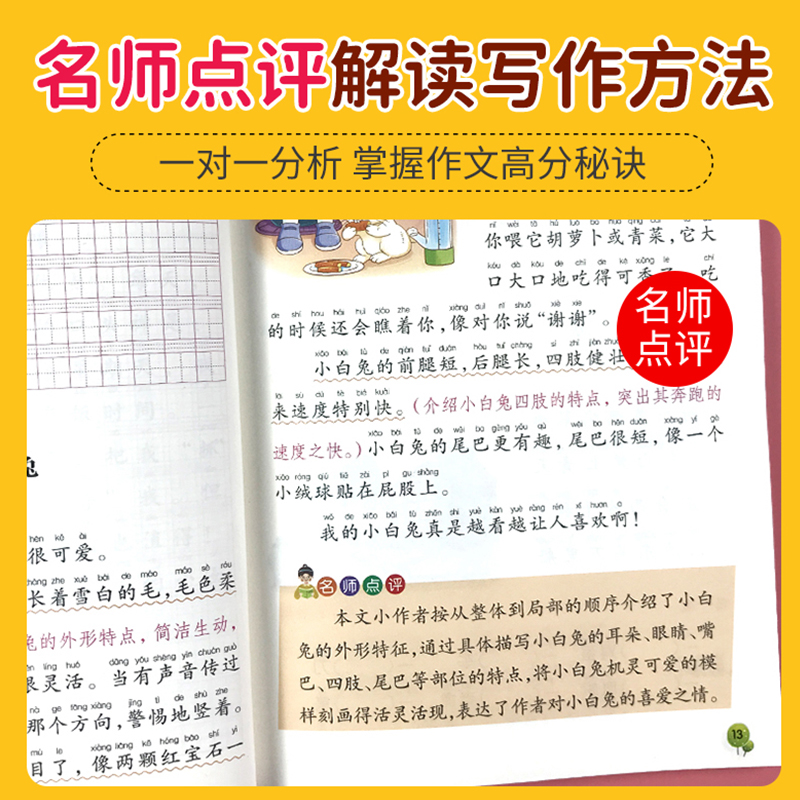 名师点评解读写作方法
一对一分析 掌握作文高分秘诀
兔
hěn kě ài
很可爱。
zhǎng zhe xuě bái de máo máo sè róu
长着雪白的毛，毛色柔
兔的外形特点，简洁生动，
líng huó dāng yǒu shēng yīn chuán guò
很灵活。当有声音传过
nà ge fāng xiàng jǐng tì de shù zhe
那个方向，警惕地竖着。
mù le xiàng liǎng kē hóng bǎo shí yī
目了，像两颗红宝石一
nǐ wèi tā hú luó bo huò qīng cài tā dà
你喂它胡萝卜或青菜，它大
kǒu dà kǒu de chī de kě xiāng le chī
口大口地吃得可香了，吃
de shí hou hái huì qiáo zhe nǐ xiàng duì nǐ shuō xiè xie
的时候还会瞧着你，像对你说“谢谢”。
xiǎo bái tù de qián tuǐ duǎn hòu tuǐ cháng sì zhī jiàn
小白兔的前腿短，后腿长，四肢健壮
lái sù dù tè bié kuài
来速度特别快。（介绍小白兔四肢的特点，突出其奔跑的
xiǎo bái tù de wěi ba gèng yǒu qù wěi ba hěn duǎn xiàng yī gè
速度之快。）小白兔的尾巴更有趣，尾巴很短，像一个
xiǎo róng qiú tiē zài pì gu shàng
小绒球贴在屁股上。
wǒ de xiǎo bái tù zhēn shì yuè kàn yuè ràng rén xǐ huan a
我的小白兔真是越看越让人喜欢啊！
名师
点评
名师点评
本文小作者按从整体到局部的顺序介绍了小白
兔的外形特征，通过具体描写小白兔的耳朵、眼睛、嘴
巴、四肢、尾巴等部位的特点，将小白兔机灵可爱的模
样刻画得活灵活现，表达了作者对小白兔的喜爱之情。
13